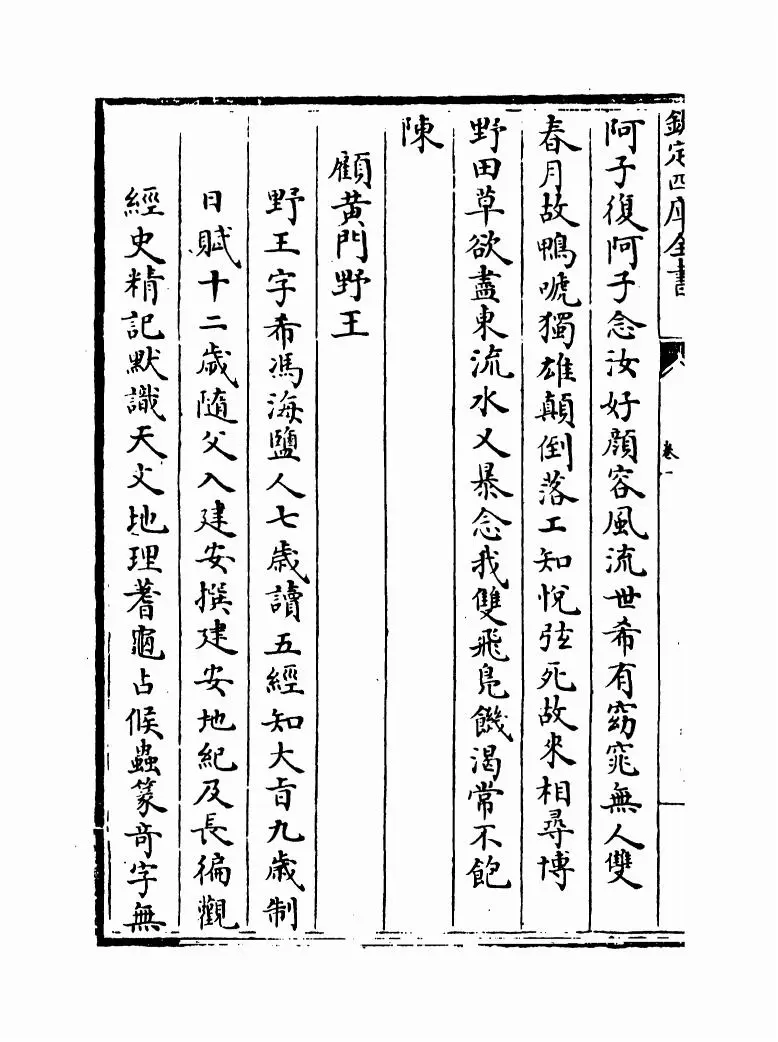 欽定四庫全書
卷一
阿子復阿子念汝好顔容風流世希有窈窕無人雙
春月故鴨啼獨雄顛倒落工知悅弦死故來相尋博
野田草欲盡東流水又暴念我雙飛鳧饑渴常不飽
陳
顧黄門野王
野王字希馮海鹽人七歲讀五經知大旨九歲制
日賦十二歲隨父入建安撰建安地紀及長徧觀
經史精記默識天文地理蓍龜占候蟲篆奇字無